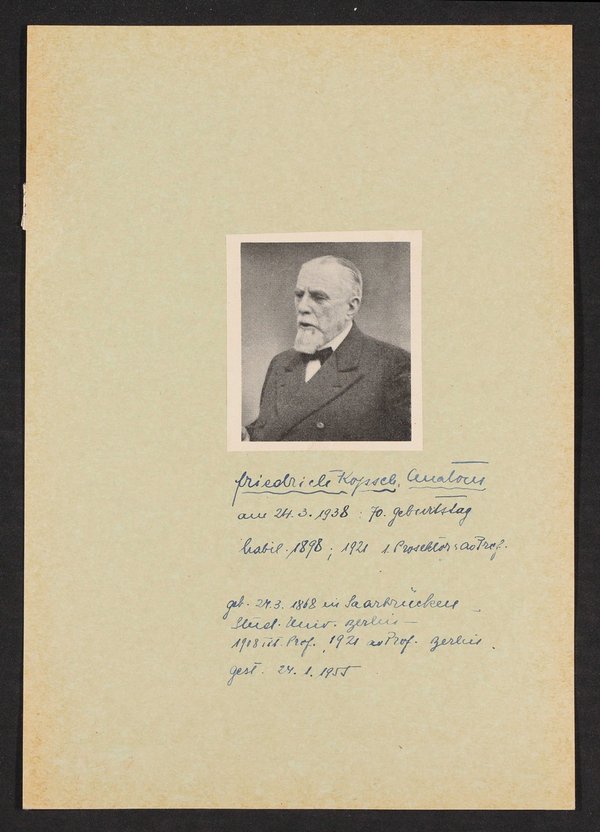 Friedrich Kopsch, Anatom
am 24.3.1938 : 70. Geburtstag
habil. 1898 ; 1921 1. Prosektor : ao Prof.
geb. 24.3. 1868 in Saarbrücken –
Stud. Univ. Berlin –
1908 tit. Prof. , 1921 ao Prof. Berlin.
gest. 24. 1. 1955